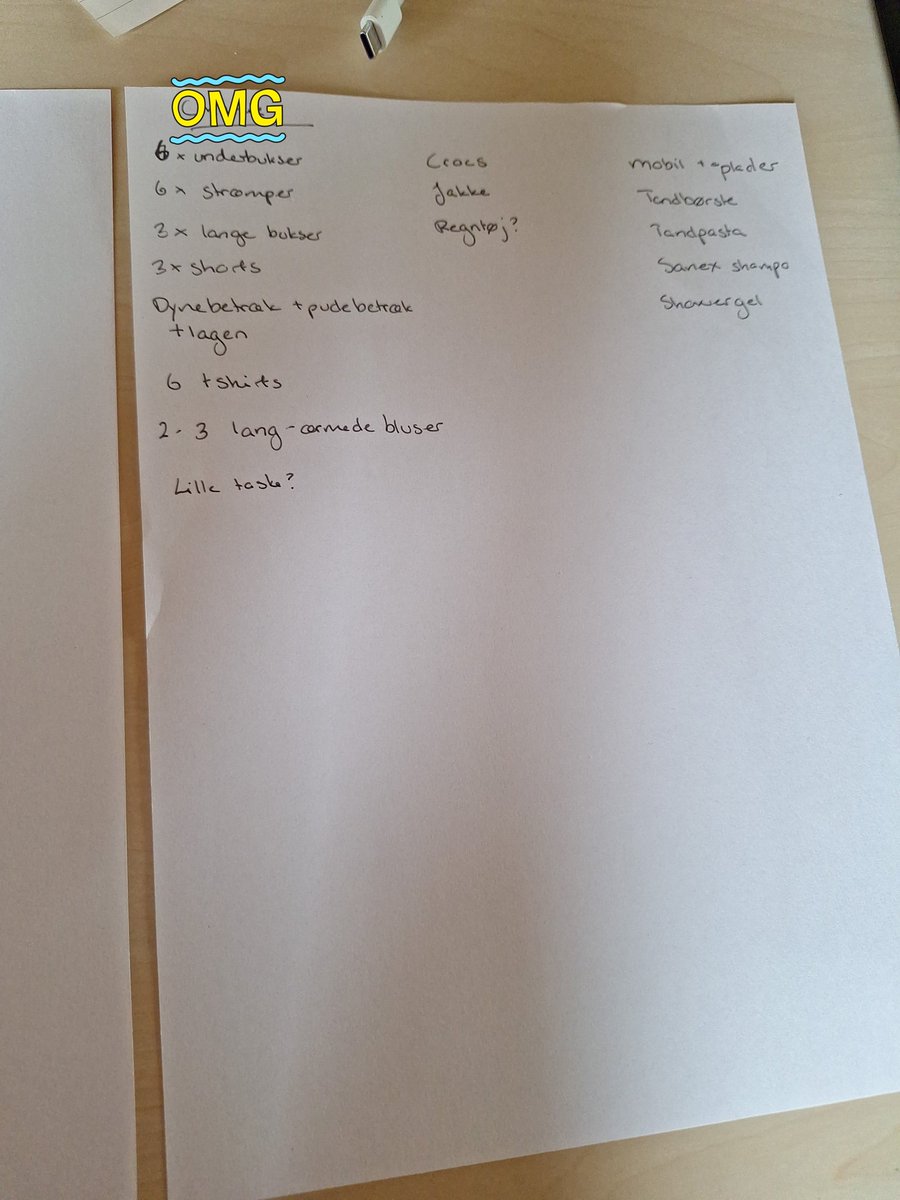 OMG
6 x underbukser
6 x strømper
3 x lange bukser
3 x shorts
Dynebetræk + pudebetræk
+ lagen
6 tshirts
2 - 3 lang-ærmede bluser
Lille taske?
Crocs
Jakke
Regntøj?
mobil + oplader
Tandbørste
Tandpasta
Sanex shampo
Showergel